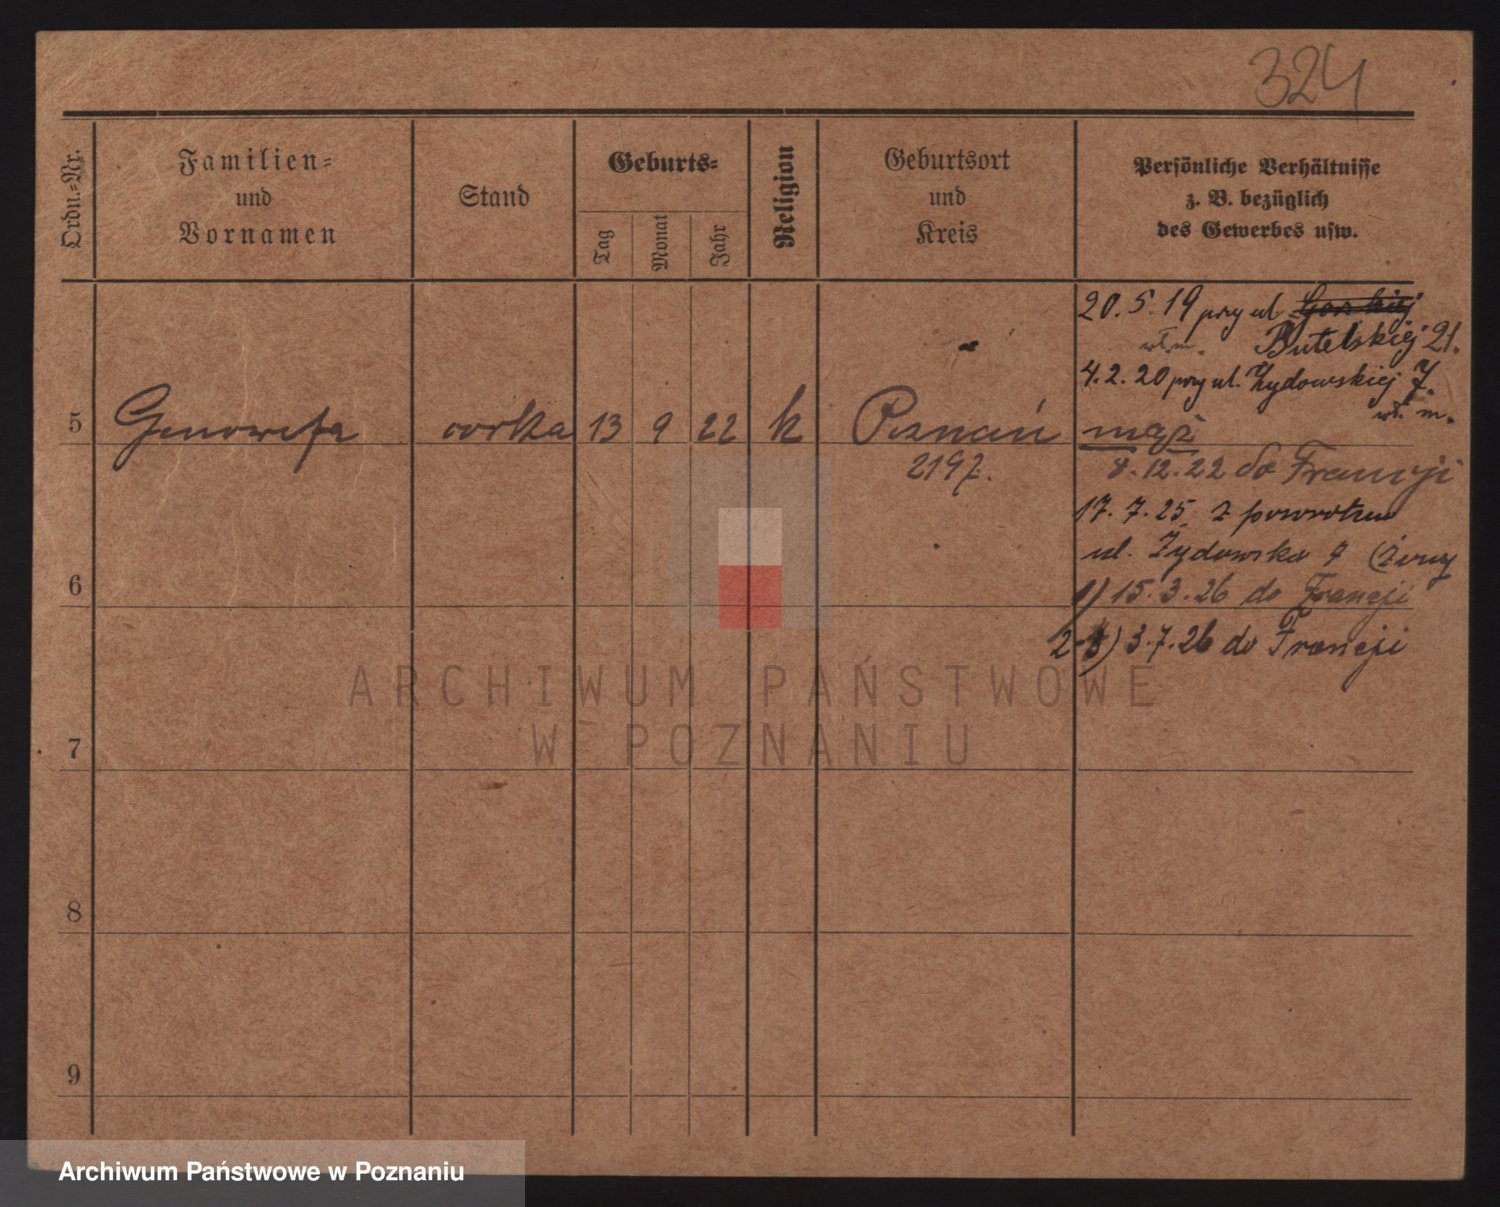 324
Ordn.-Nr.
Familien-
und
Vornamen
Stand
Geburts-
Tag
Monat
Jahr
Religion
Geburtsort
und
Kreis
Persönliche Verhältnisse
z. B. bezüglich
des Gewerbes usw.
20.5.19 przy ul
Butelskiej 21.
wł. m.
4.2.20 przy ul. Żydowskiej 7.
wł. m.
5 Genowefa corka 13 9 22 k Poznań mąż
2197. 8.12.22 do Francji
17.7.25 z powrotem
ul. Żydowska 7
6
1) 15.3.26 do Francji
3.7.26 do Francji
7
8
9
ARCHIWUM PAŃSTWOWE
W POZNANIU
Archiwum Państwowe w Poznaniu